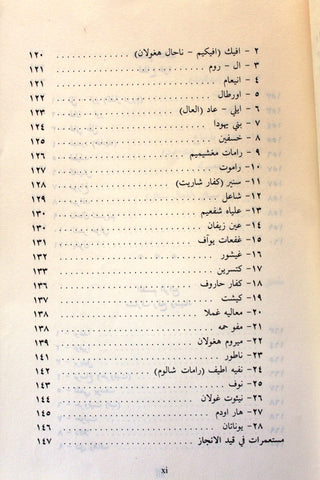 ٢ - افيك (افيكيم - ناحال هغولان) ١٢٠
٣ - ال - روم ١٢١
٤ - انيعام ١٢١
٥ - اورطال ١٢٢
٦ - ايلي - عاد (العال) ١٢٣
٧ - بني يهودا ١٢٤
٨ - خسفين ١٢٥
٩ - رامات مغشيميم ١٢٦
١٠ - راموت ١٢٧
١١ - سنير (كفار شاريت) ١٢٨
١٢ - شاعل ١٢٩
١٣ - علياه شفعيم ١٣٠
١٤ - عين زيفان ١٣٠
١٥ - غفعات يوآف ١٣١
١٦ - غيشور ١٣٢
١٧ - كتسرين ١٣٣
١٨ - كفار حاروف ١٣٦
١٩ - كيشت ١٣٧
٢٠ - معاليه غملا ١٣٨
٢١ - مفو حمه ١٣٨
٢٢ - ميروم هغولان ١٣٩
٢٣ - ناطور ١٤١
٢٤ - نفيه اطيف (رامات شالوم) ١٤٢
٢٥ - نوف ١٤٣
٢٦ - نيئوت غولان ١٤٤
٢٧ - هار اودم ١٤٥
٢٨ - يوناتان ١٤٦
مستعمرات في قيد الانجاز ١٤٧
xi